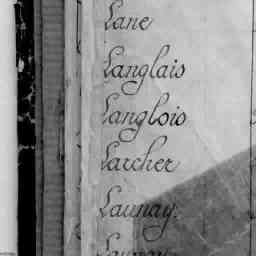 Lane
Langlais
Langlois
Larcher
Launay.
Launay